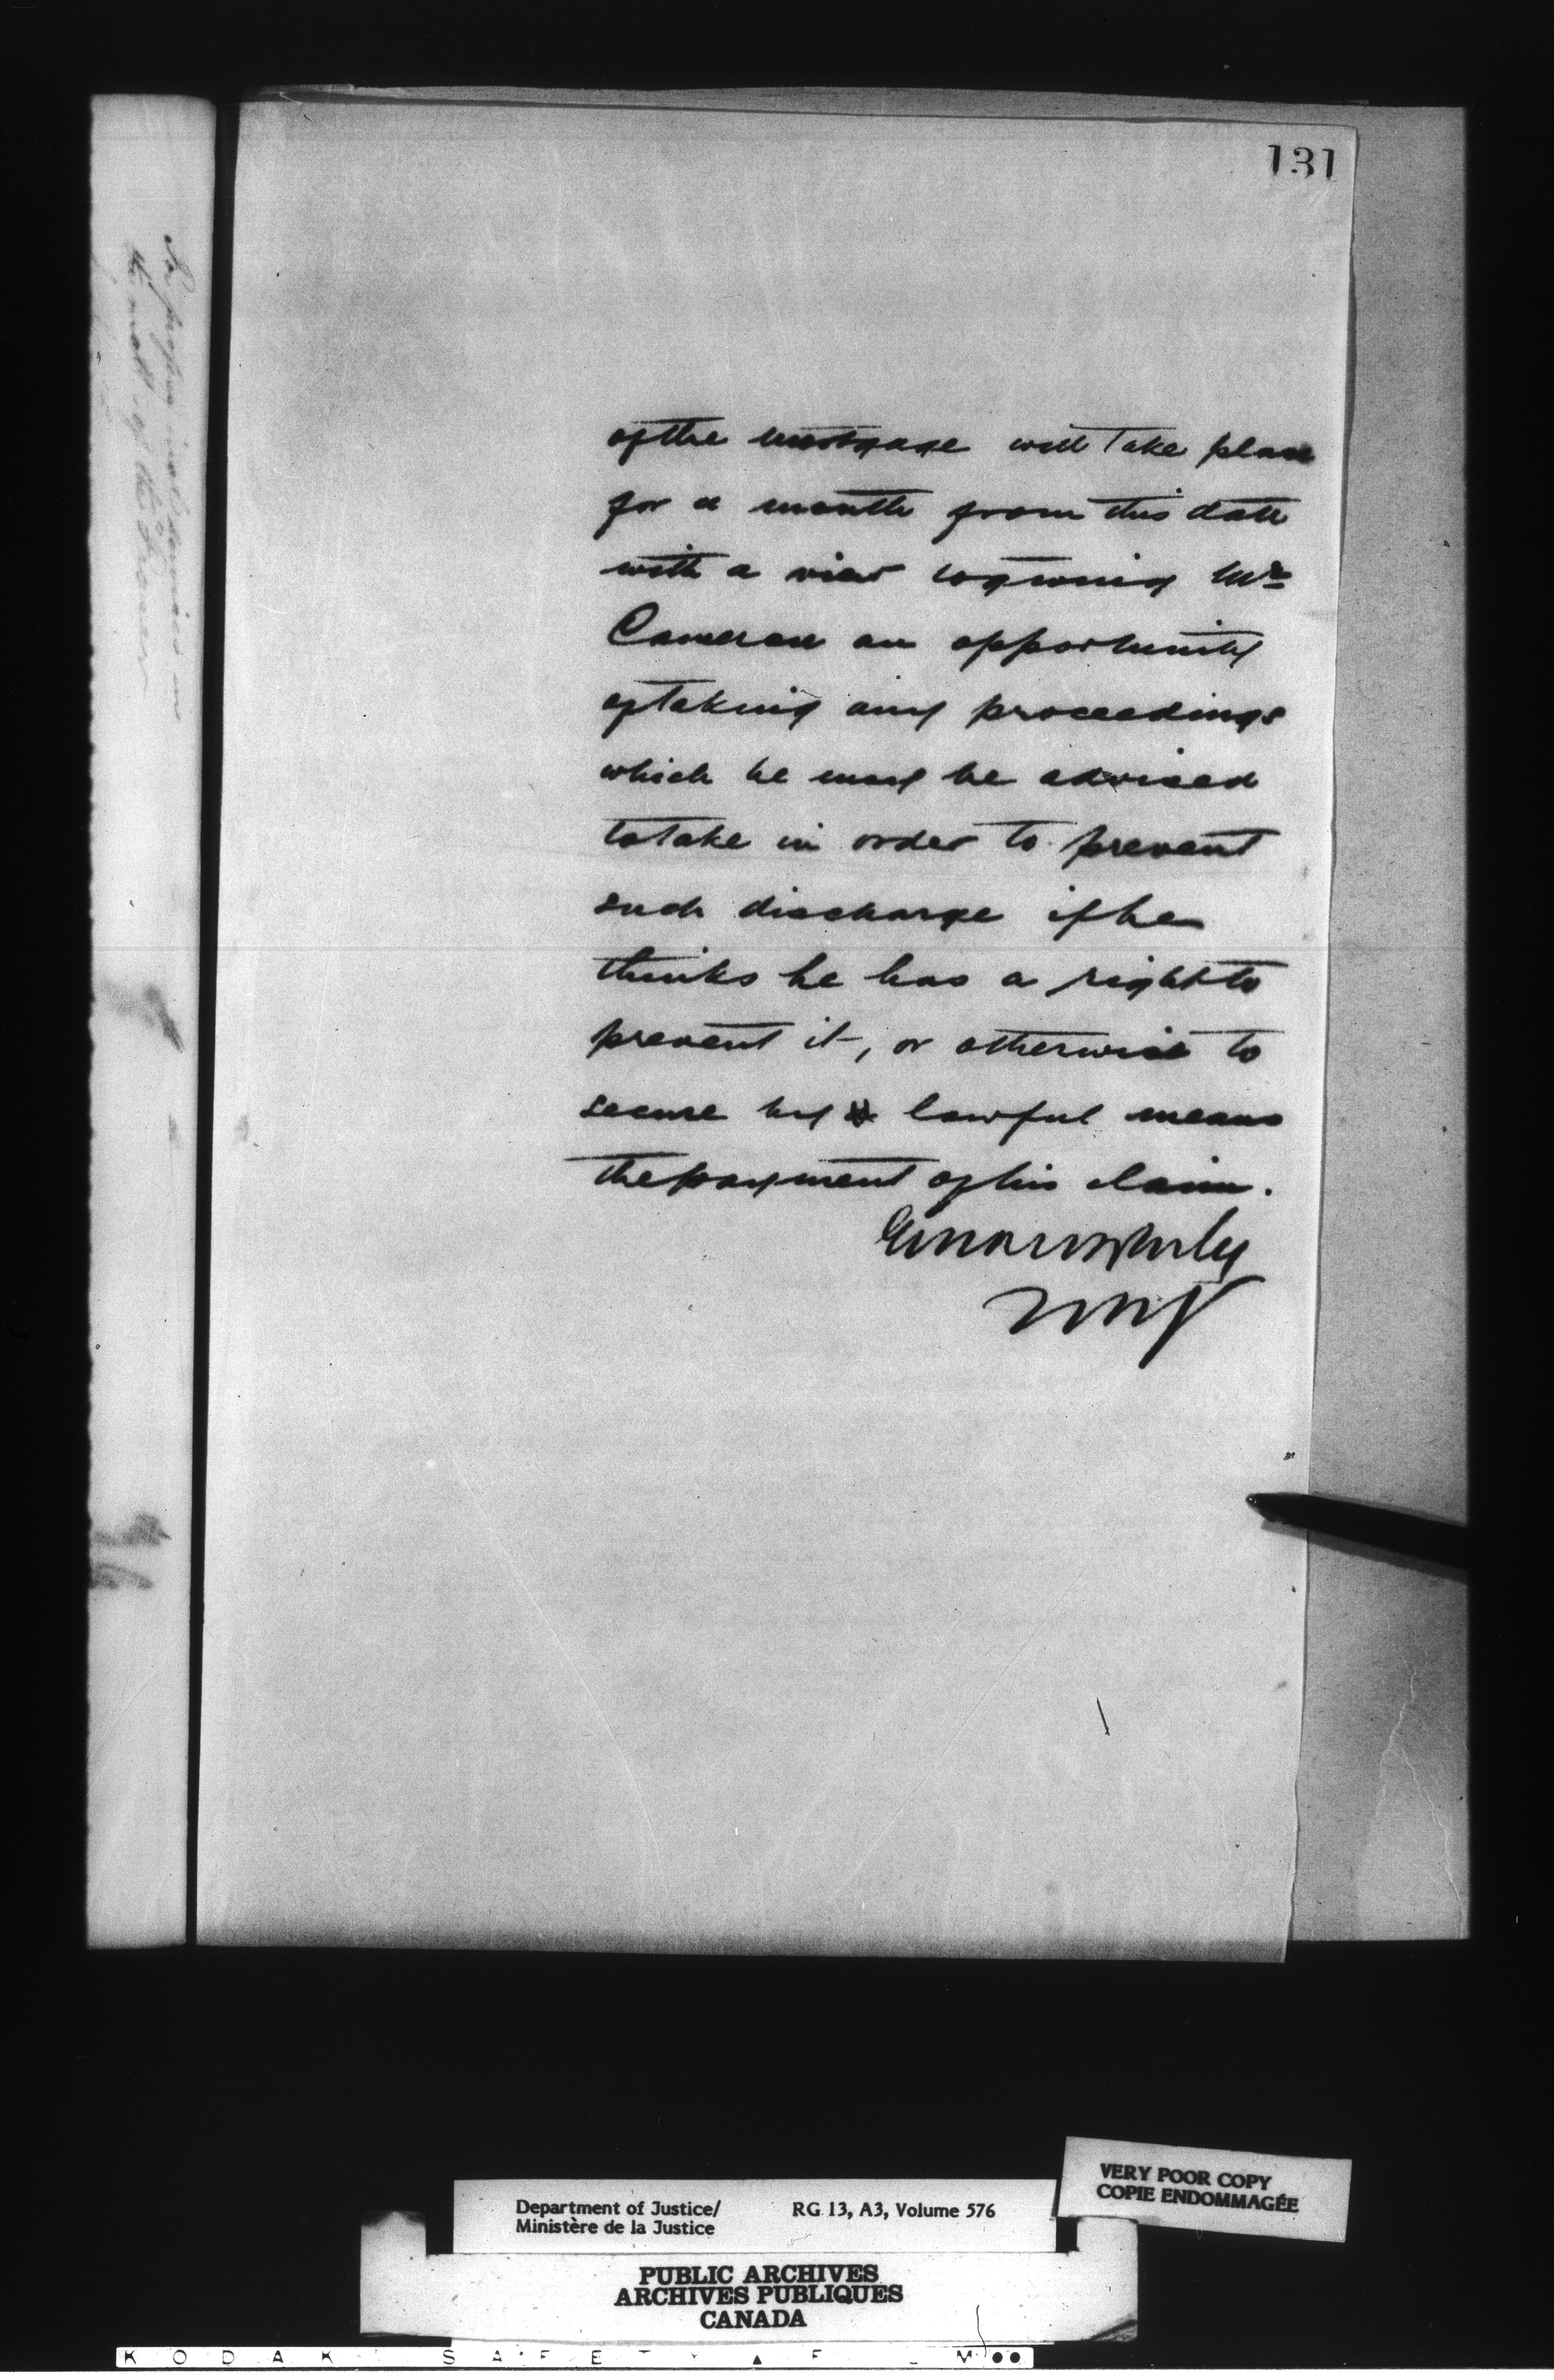 131
of the mortgage will take place
for a month from this date
with a view to giving Mr
Cameron an opportunity
of taking any proceedings
which he may be advised
to take in order to prevent
such discharge if he
thinks he has a right to
prevent it, or otherwise to
secure by lawful means
the payment of his claim.
of the
VERY POOR COPY
COPIE ENDOMMAGÉE
Department of Justice/ RG 13, A3, Volume 576
Ministère de la Justice
PUBLIC ARCHIVES
ARCHIVES PUBLIQUES
CANADA
KODAK SAFETY